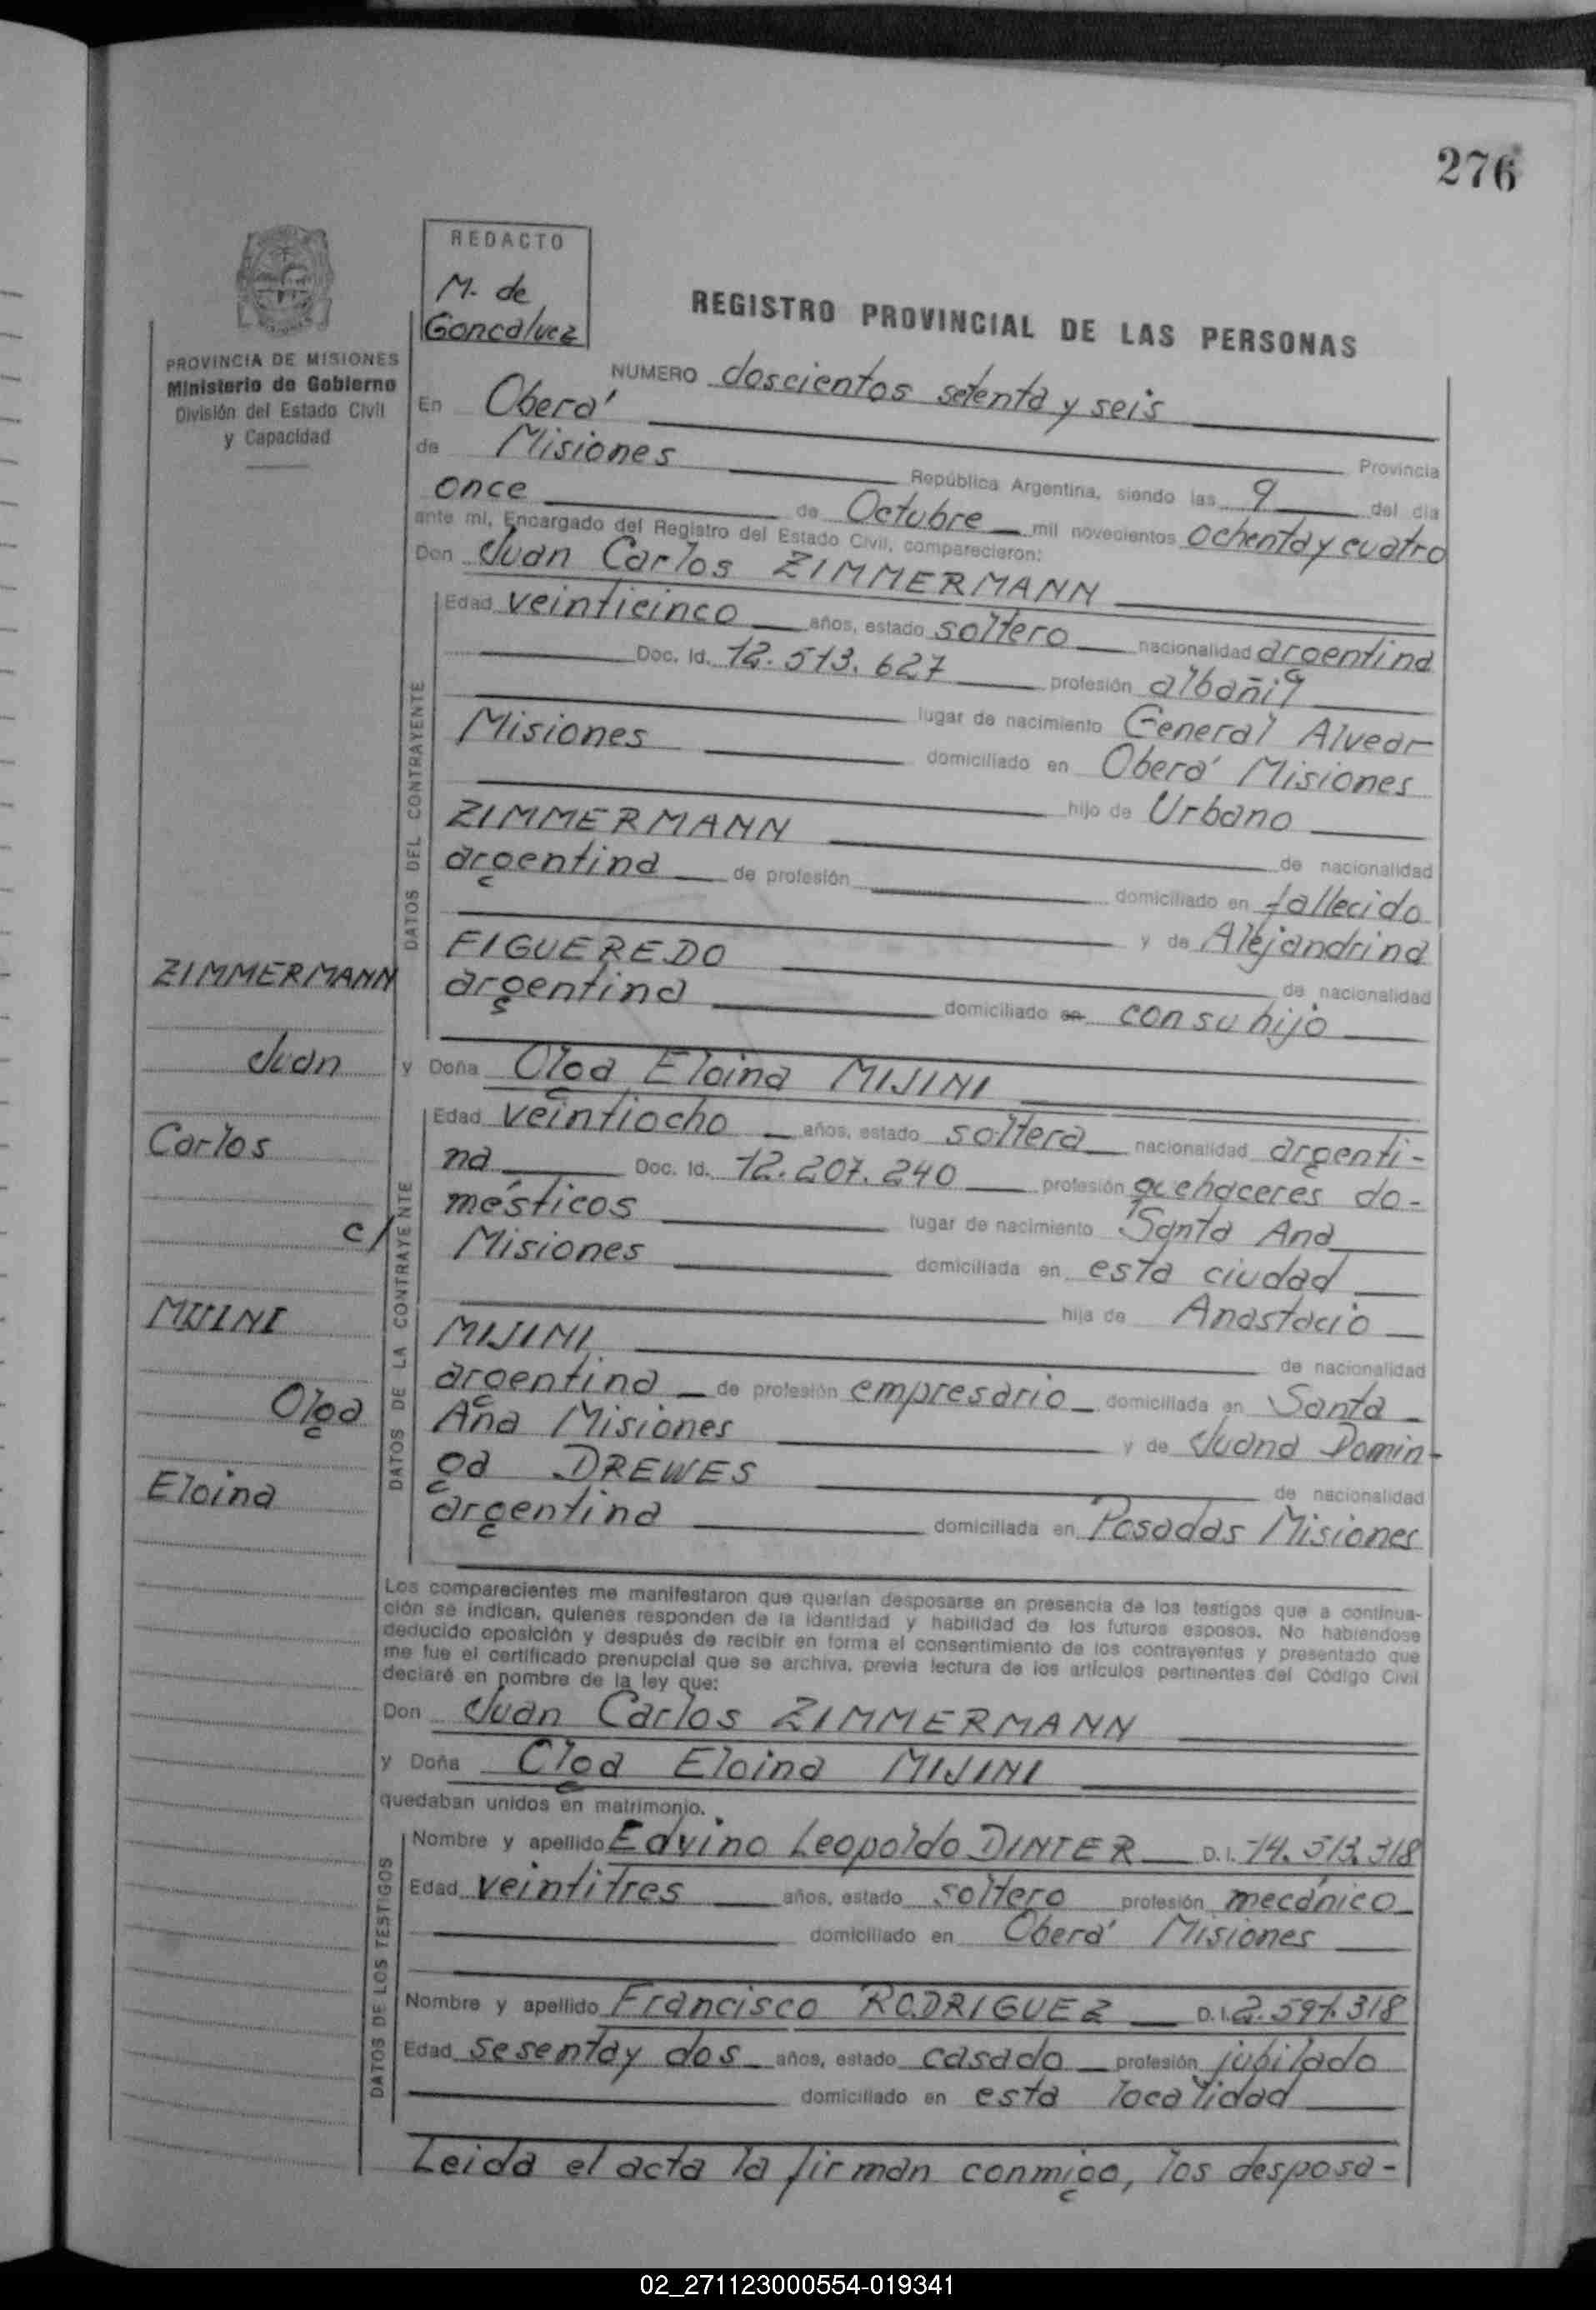 276
REDACTO
M. de
Goncalvez
PROVINCIA DE MISIONES
Ministerio de Gobierno
División del Estado Civil
y Capacidad
REGISTRO PROVINCIAL DE LAS PERSONAS
NUMERO doscientos setenta y seis
En Oberá Provincia
de Misiones República Argentina, siendo las 9 del día
once de Octubre mil novecientos ochenta y cuatro
ante mí, Encargado del Registro del Estado Civil, comparecieron:
Don Juan Carlos ZIMMERMANN
DATOS DEL CONTRAYENTE
Edad veinticinco años, estado soltero nacionalidad argentina
Doc. Id. 12.513.627 profesión albañil
lugar de nacimiento General Alvear
Misiones domiciliado en Oberá Misiones
hijo de Urbano
ZIMMERMANN de nacionalidad
argentina de profesión domiciliado en fallecido
y de Alejandrina
FIGUEREDO de nacionalidad
argentina domiciliado en con su hijo
y Doña Olga Eloina MIJINI
DATOS DE LA CONTRAYENTE
Edad veintiocho años, estado soltera nacionalidad argenti-
na Doc. Id. 12.207.240 profesión quehaceres do-
mésticos lugar de nacimiento Santa Ana
Misiones domiciliada en esta ciudad
hija de Anastacio
MIJINI de nacionalidad
argentina de profesión empresario domiciliada en Santa
Ana Misiones y de Juana Domin-
ga DREWES de nacionalidad
argentina domiciliada en Posadas Misiones
ZIMMERMANN
Juan
Carlos
c/
MIJINI
Olga
Eloina
Los comparecientes me manifestaron que querían desposarse en presencia de los testigos que a continua-
ción se indican, quienes responden de la identidad y habilidad de los futuros esposos. No habiendose
deducido oposición y después de recibir en forma el consentimiento de los contrayentes y presentado que
me fue el certificado prenupcial que se archiva, previa lectura de los artículos pertinentes del Código Civil
declaré en nombre de la ley que:
Don Juan Carlos ZIMMERMANN
y Doña Olga Eloina MIJINI
quedaban unidos en matrimonio.
DATOS DE LOS TESTIGOS
Nombre y apellido Edvino Leopoldo DINTER D.I. 14.513.318
Edad veintitres años, estado soltero profesión mecánico
domiciliado en Oberá Misiones
Nombre y apellido Francisco RODRIGUEZ D.I.
Edad sesenta y dos años, estado casado profesión jubilado
domiciliado en esta localidad
Leida el acta la firman conmigo, los desposa-
02_271123000554-019341